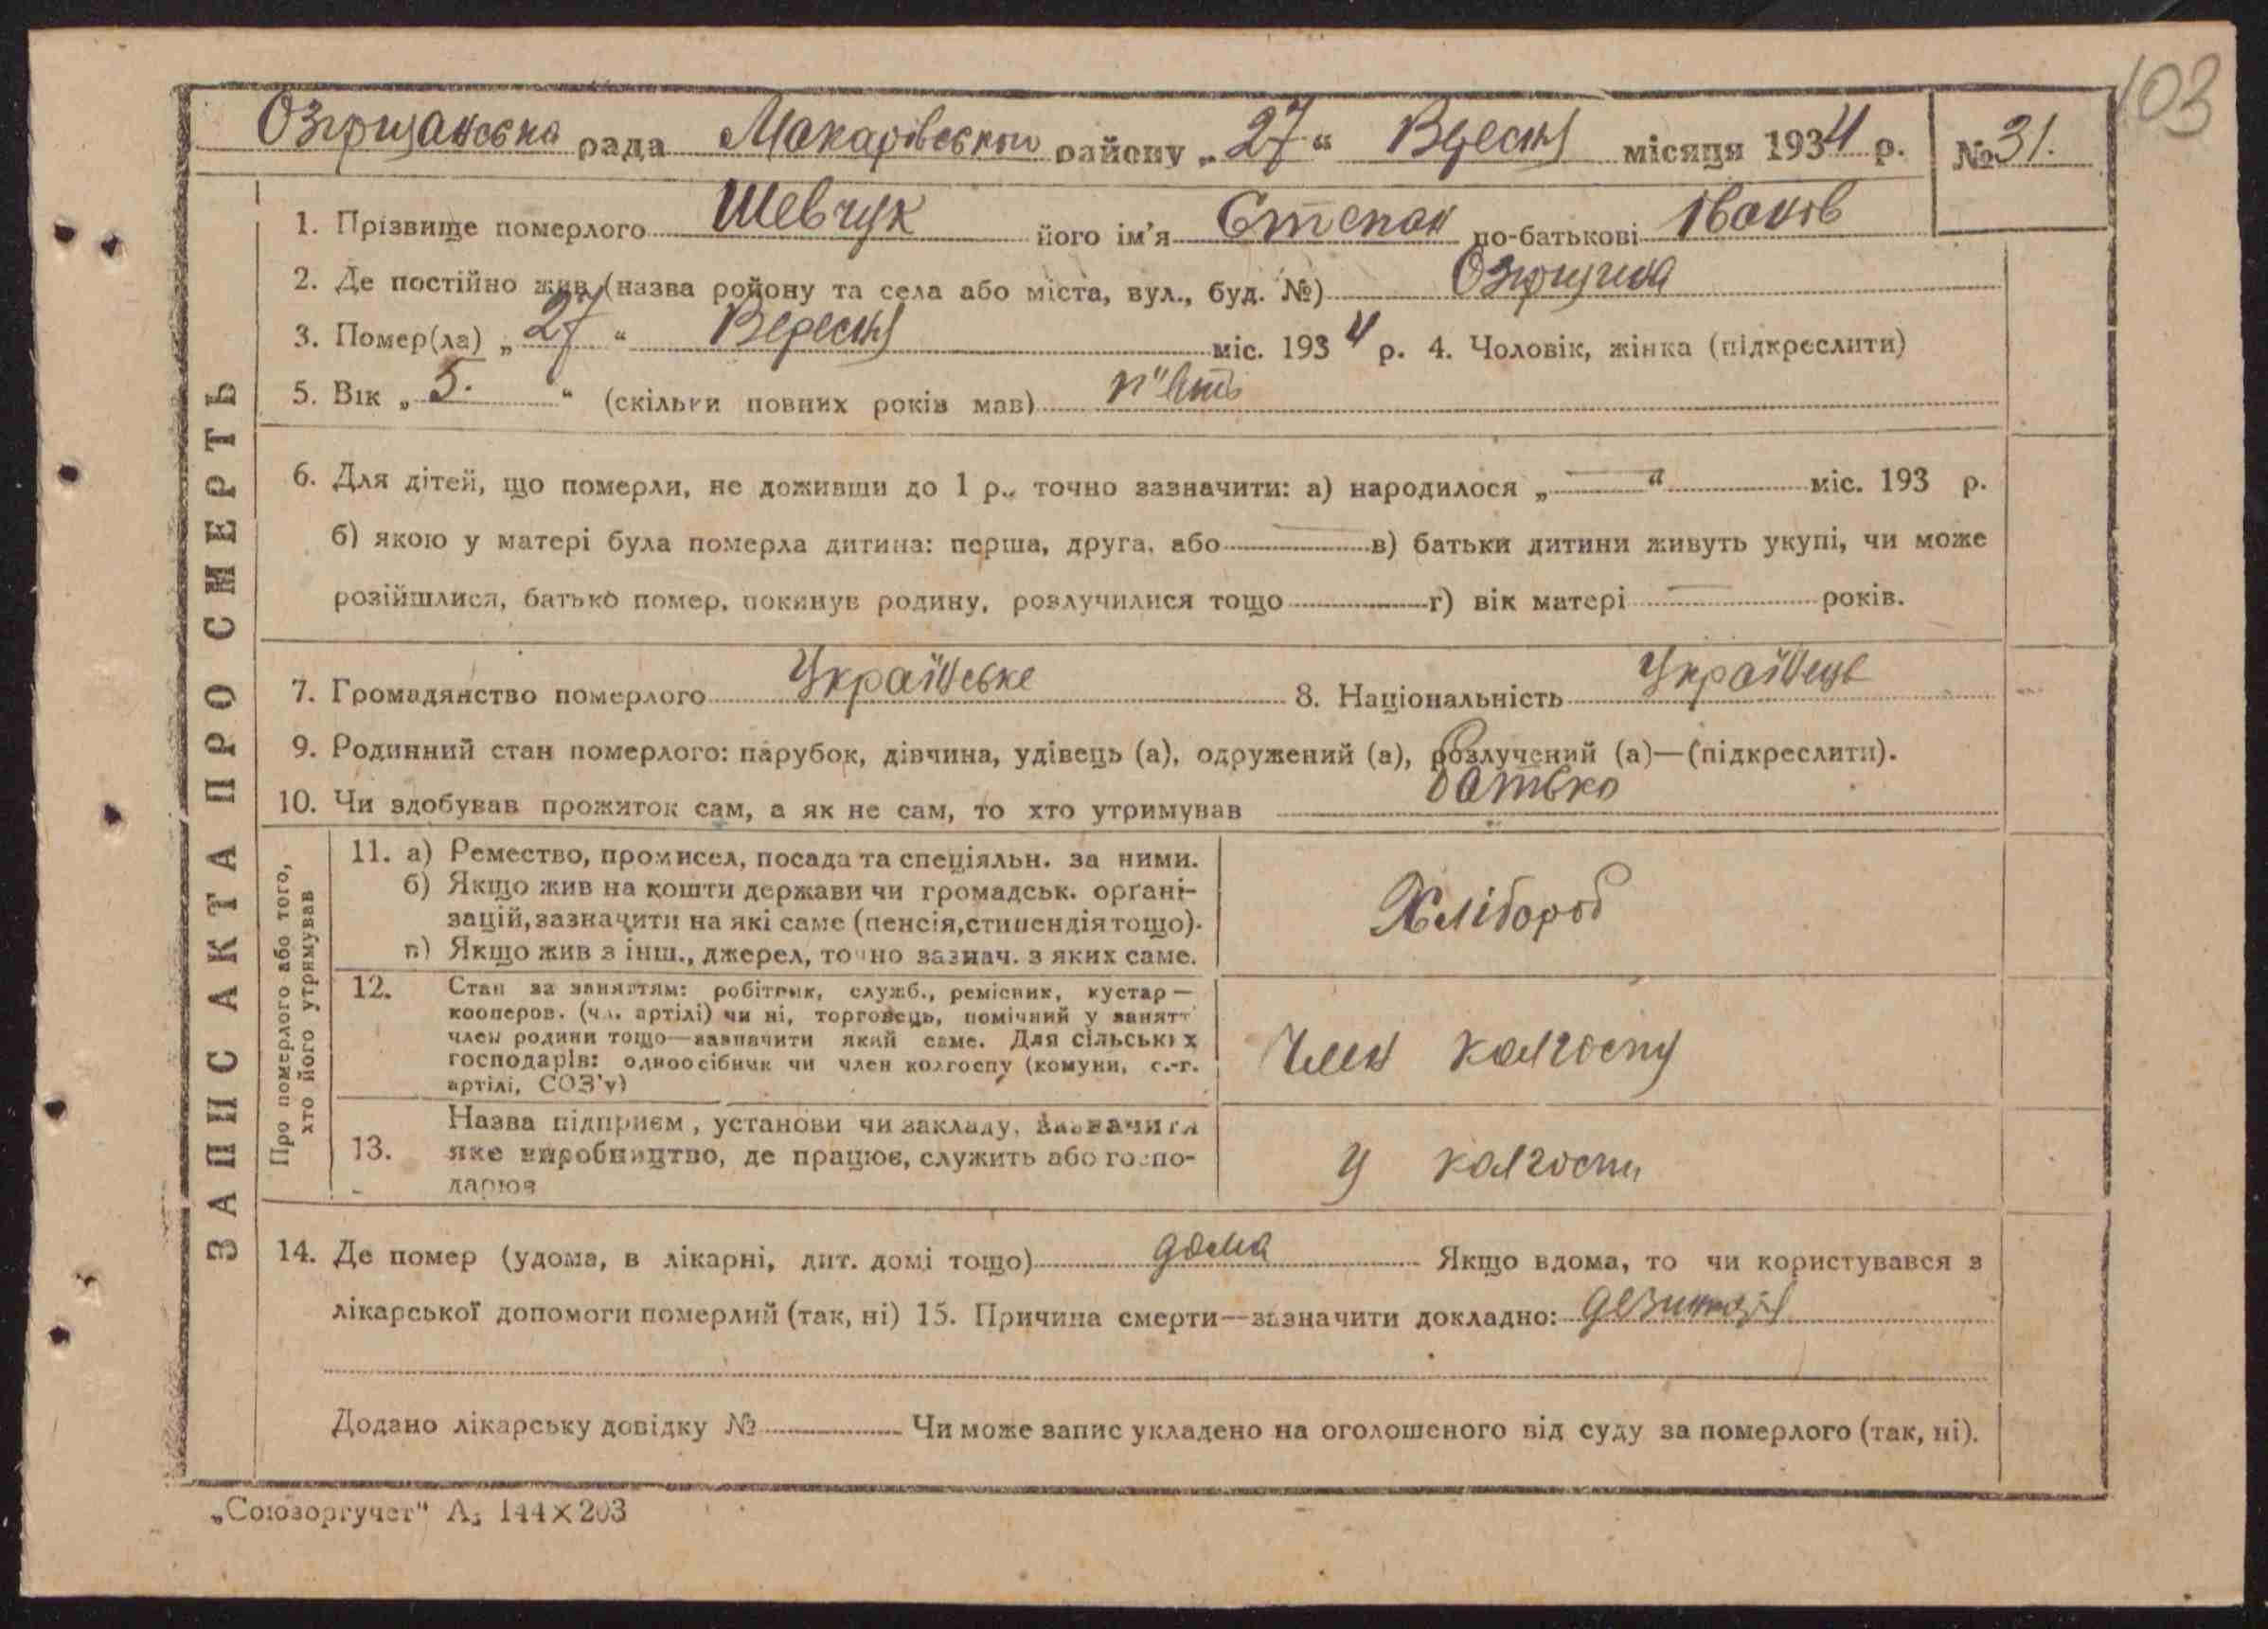 103
Озірщанська рада Макарівського району „27“ Вересня місяця 1934 р. № 31.
ЗАПИС АКТА ПРО СМЕРТЬ
1. Прізвище померлого Шевчук його ім'я Степан по-батькові Іванів
2. Де постійно жив (назва ройону та села або міста, вул., буд. №) Озірщина
3. Помер(ла) „27“ Вересня міс. 1934 р. 4. Чоловік, жінка (підкреслити)
5. Вік „5.“ (скільки повних років мав) п"ять
6. Для дітей, що померли, не доживши до 1 р., точно зазначити: а) народилося „—“ міс. 193 р.
б) якою у матері була померла дитина: перша, друга, або — в) батьки дитини живуть укупі, чи може
розійшлися, батько помер, покинув родину, розлучилися тощо г) вік матері — років.
7. Громадянство померлого Українське 8. Національність Українець
9. Родинний стан померлого: парубок, дівчина, удівець (а), одружений (а), розлучений (а)—(підкреслити).
10. Чи здобував прожиток сам, а як не сам, то хто утримував батько
Про померлого або того, хто його утримував
11. а) Ремество, промисел, посада та спеціяльн. за ними.
б) Якщо жив на кошти держави чи громадськ. органі-
зацій, зазначити на які саме (пенсія, стипендія тощо).
в) Якщо жив з інш., джерел, точно зазнач. з яких саме.
Хлібороб
12. Стан за заняттям: робітник, служб., ремісник, кустар—
кооперов. (чл. артілі) чи ні, торговець, помічний у занятт
член родини тощо—зазначити який саме. Для сільських
господарів: одноосібник чи член колгоспу (комуни, с.-г.
артілі, СОЗ'у)
Член колгоспу
13. Назва підприєм, установи чи закладу, зазначити
яке виробництво, де працює, служить або госпо-
дарює
У колгоспі
14. Де помер (удома, в лікарні, дит. домі тощо) дома Якщо вдома, то чи користувався з
лікарської допомоги померлий (так, ні) 15. Причина смерти—зазначити докладно:
Додано лікарську довідку № Чи може запис укладено на оголошеного від суду за померлого (так, ні).
„Союзоргучет" А₅ 144×203